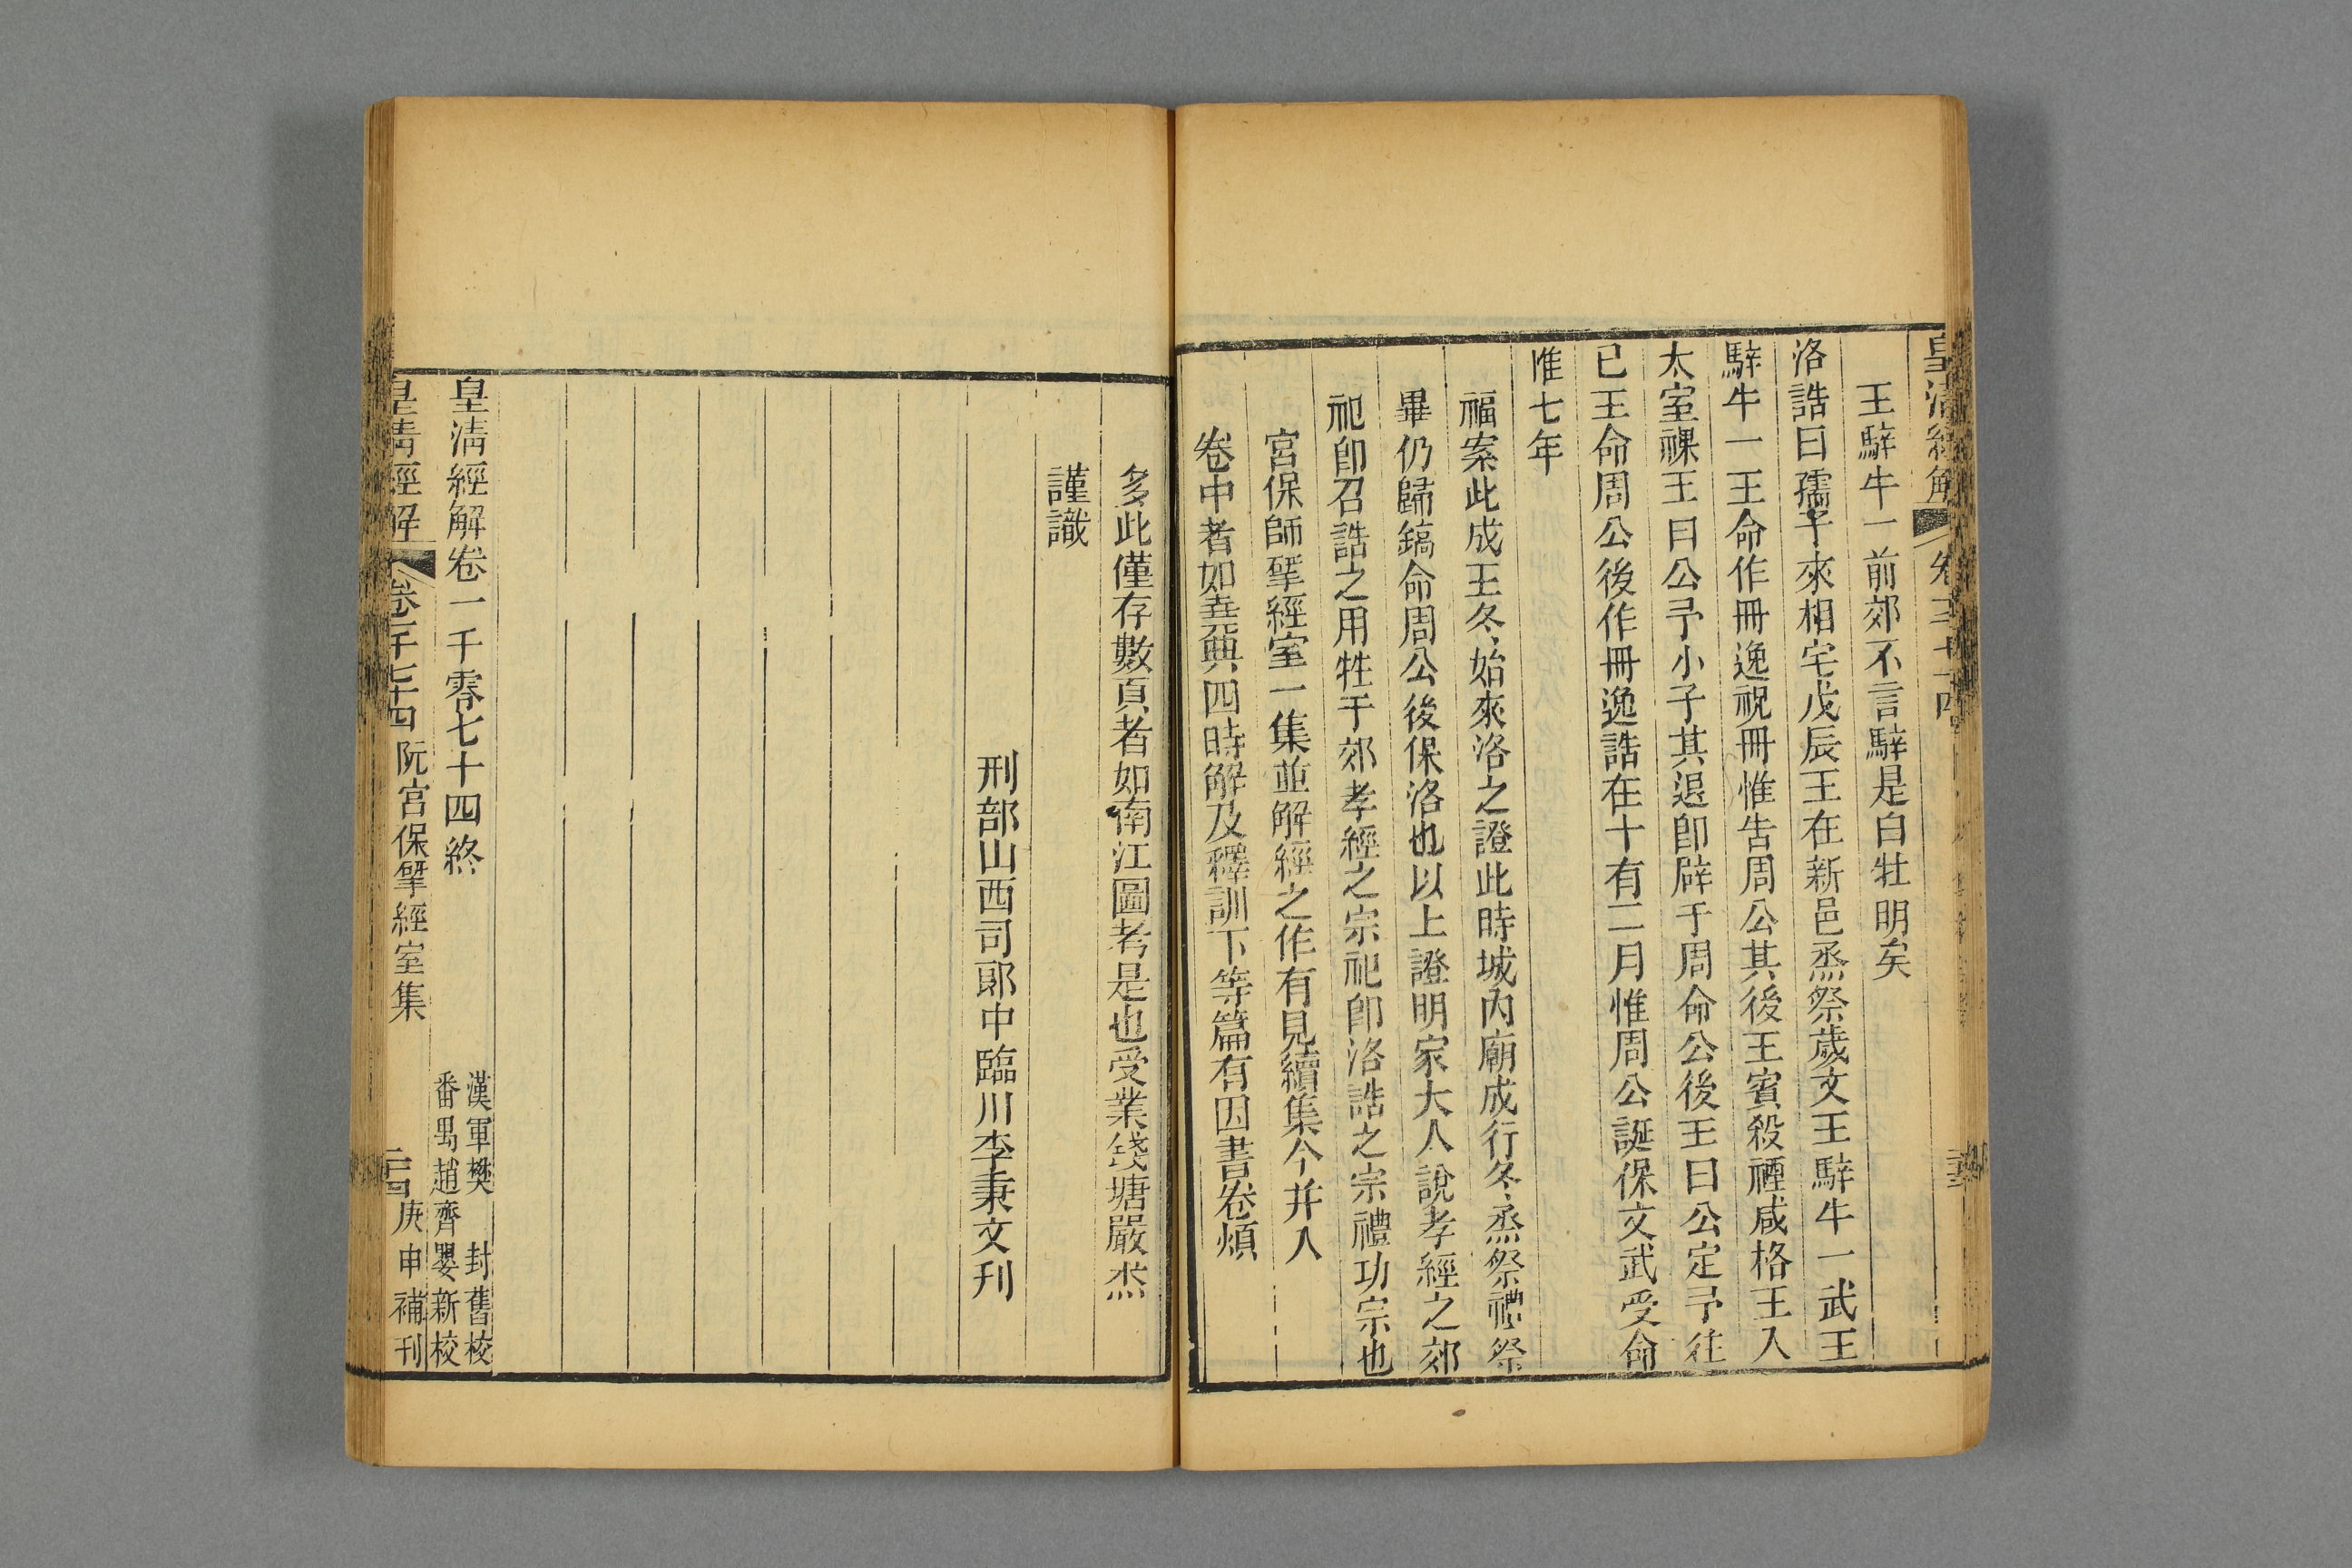 皇清經解
王騂牛一前郊不言騂是白牡明矣
洛誥曰孺子來相宅戊辰王在新邑烝祭歲文王騂牛一武王
騂牛一王命作冊逸祝冊惟告周公其後王賓殺禋咸格王入
太室祼王曰公予小子其退卽辟于周命公後王曰公定予往
已王命周公後作冊逸誥在十有二月惟周公誕保文武受命
惟七年
福案此成王冬始來洛之證此時城內廟成行冬烝祭禮祭
畢仍歸鎬命周公後保洛也以上證明家大人說孝經之郊
祀卽召誥之用牲于郊孝經之宗祀卽洛誥之宗禮功宗也
宮保師揅經室一集並解經之作有見續集今并入
卷中者如堯典四時解及釋訓下等篇有因書卷煩
多此僅存數頁者如南江圖考是也受業錢塘嚴杰
謹識
刑部山西司郎中臨川李秉文刊
皇清經解卷一千零七十四終
漢軍樊封舊校
番禺趙齊嬰新校
皇清經解 卷一千七十四 阮宮保揅經室集 庚申補刊